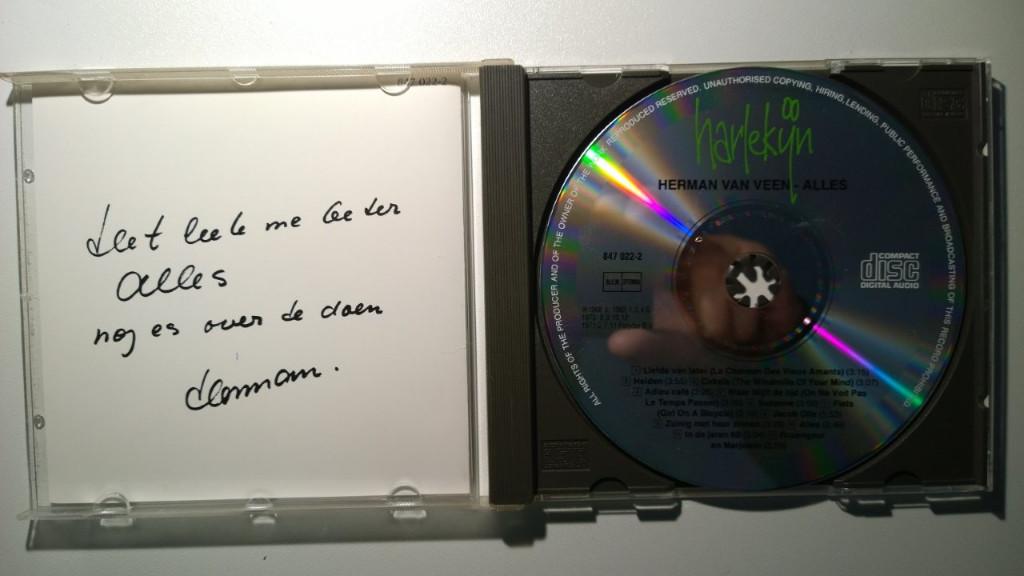 847 022-2
Het leek me beter
alles
nog es over te doen
Herman.
ALL RIGHTS OF THE PRODUCER AND OF THE OWNER OF THE WORK REPRODUCED RESERVED. UNAUTHORISED COPYING, HIRING, LENDING, PUBLIC PERFORMANCE AND BROADCASTING OF THIS RECORD PROHIBITED
harlekijn
HERMAN VAN VEEN - ALLES
847 022-2
BIEM STEMRA
COMPACT
disc
DIGITAL AUDIO
Liefde van later (La Chanson Des Vieux Amants) (3:15)
Helden (3:55) Cirkels (The Windmills Of Your Mind) (3:07)
Adieu café Waar blijft de tijd (On Ne Voit Pas
Le Temps Passer) Suzanne Fiets
(Girl On A Bicycle) Jacob Olle
Zuinig met haar zinnen Alles
In de jaren 60 Rozengeur
en Marjolein